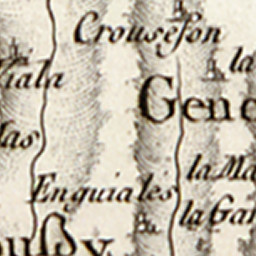 Crousesson
Viala
la
Gene
las
la Ma
Enguiales
la Gar
oussy